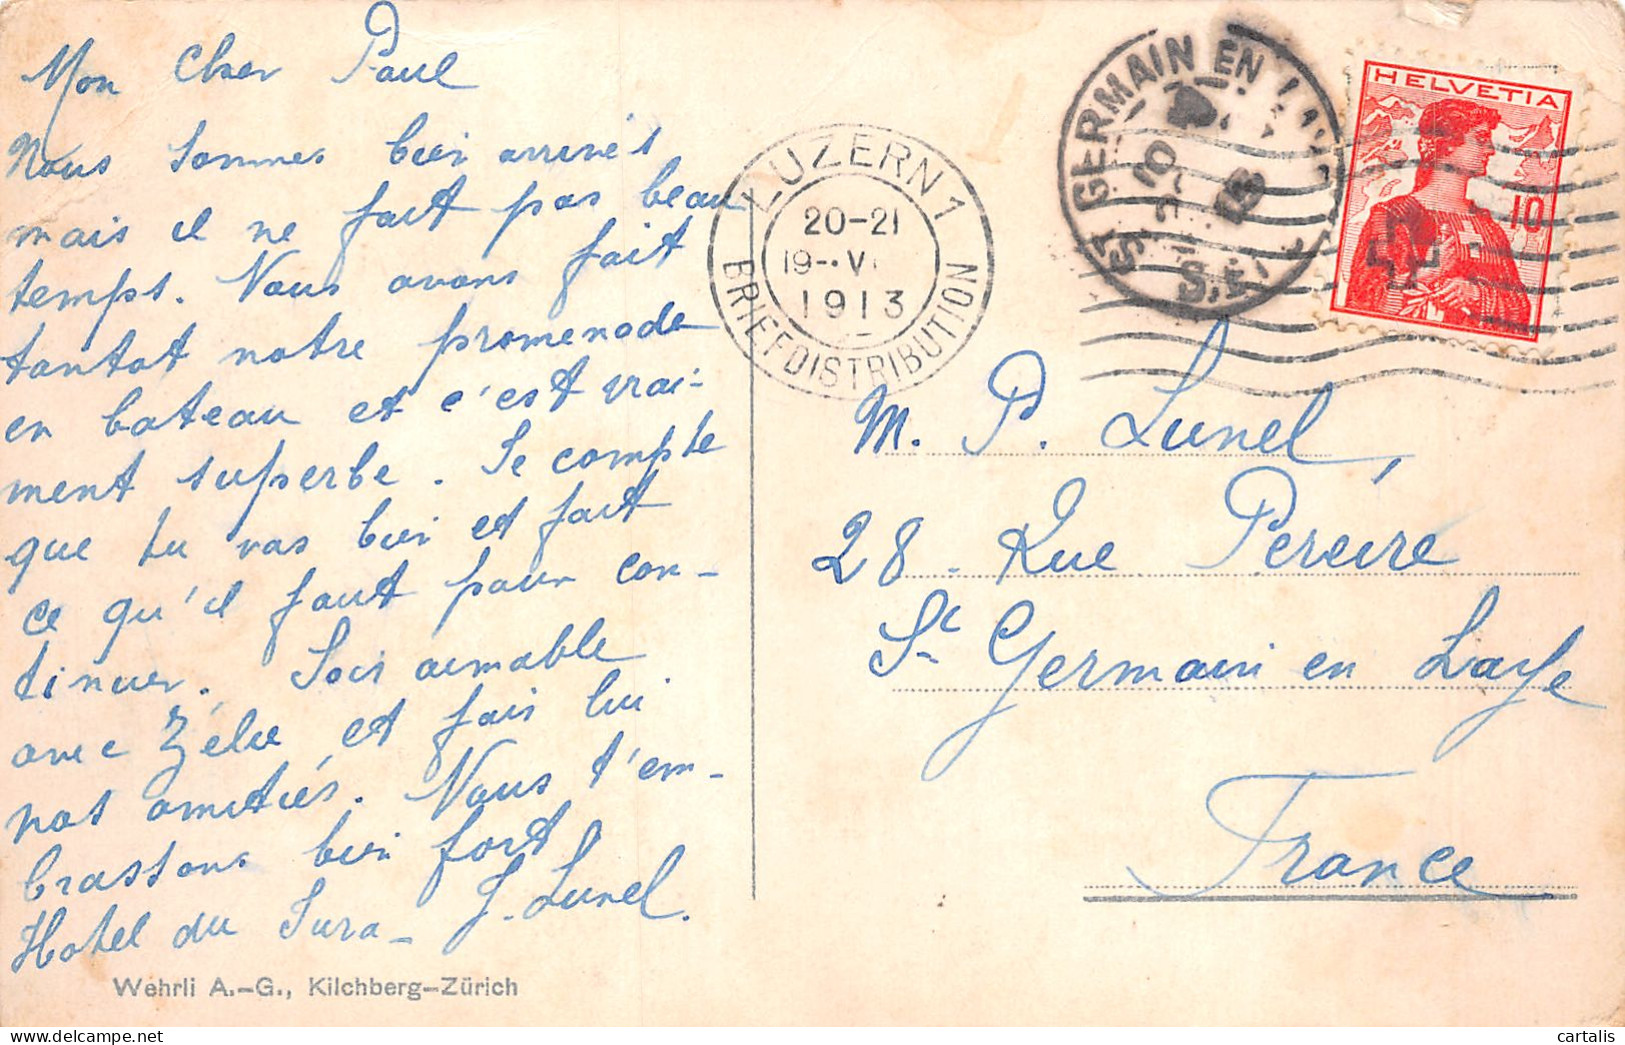 Mon cher Paul
Nous sommes bien arrivés
mais il ne fait pas beau
temps. Nous avons fait
tantot notre promenade
en bateau et c'est vrai-
ment superbe. Je compte
que tu vas bien et fait
ce qu'il faut pour con-
tinuer. Sois aimable
avec Zélie et fais lui
nos amitiés. Nous t'em-
brassons bien fort
Hotel du Jura - J. Lunel.
Wehrli A.-G., Kilchberg-Zürich
LUZERN 1
20-21
19-. V
1913
BRIEFDISTRIBUTION
ST GERMAIN EN
HELVETIA
10
M. P. Lunel,
28 - Rue Péreire
St Germain en Laye
France
cartalis